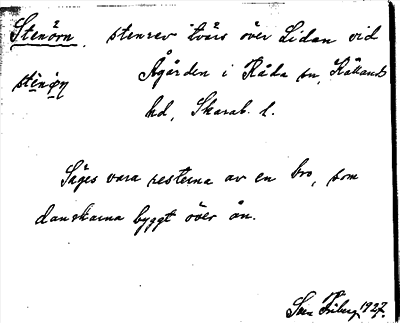 Stenörn. stenrev tvärs över Lidan vid
stènø̀ṇ Ågården i Råda sn, Kålland
hd, Skarab. l.
Säges vara resterna av en bro, som
danskarna byggt över ån.
Sven Friberg 1927.